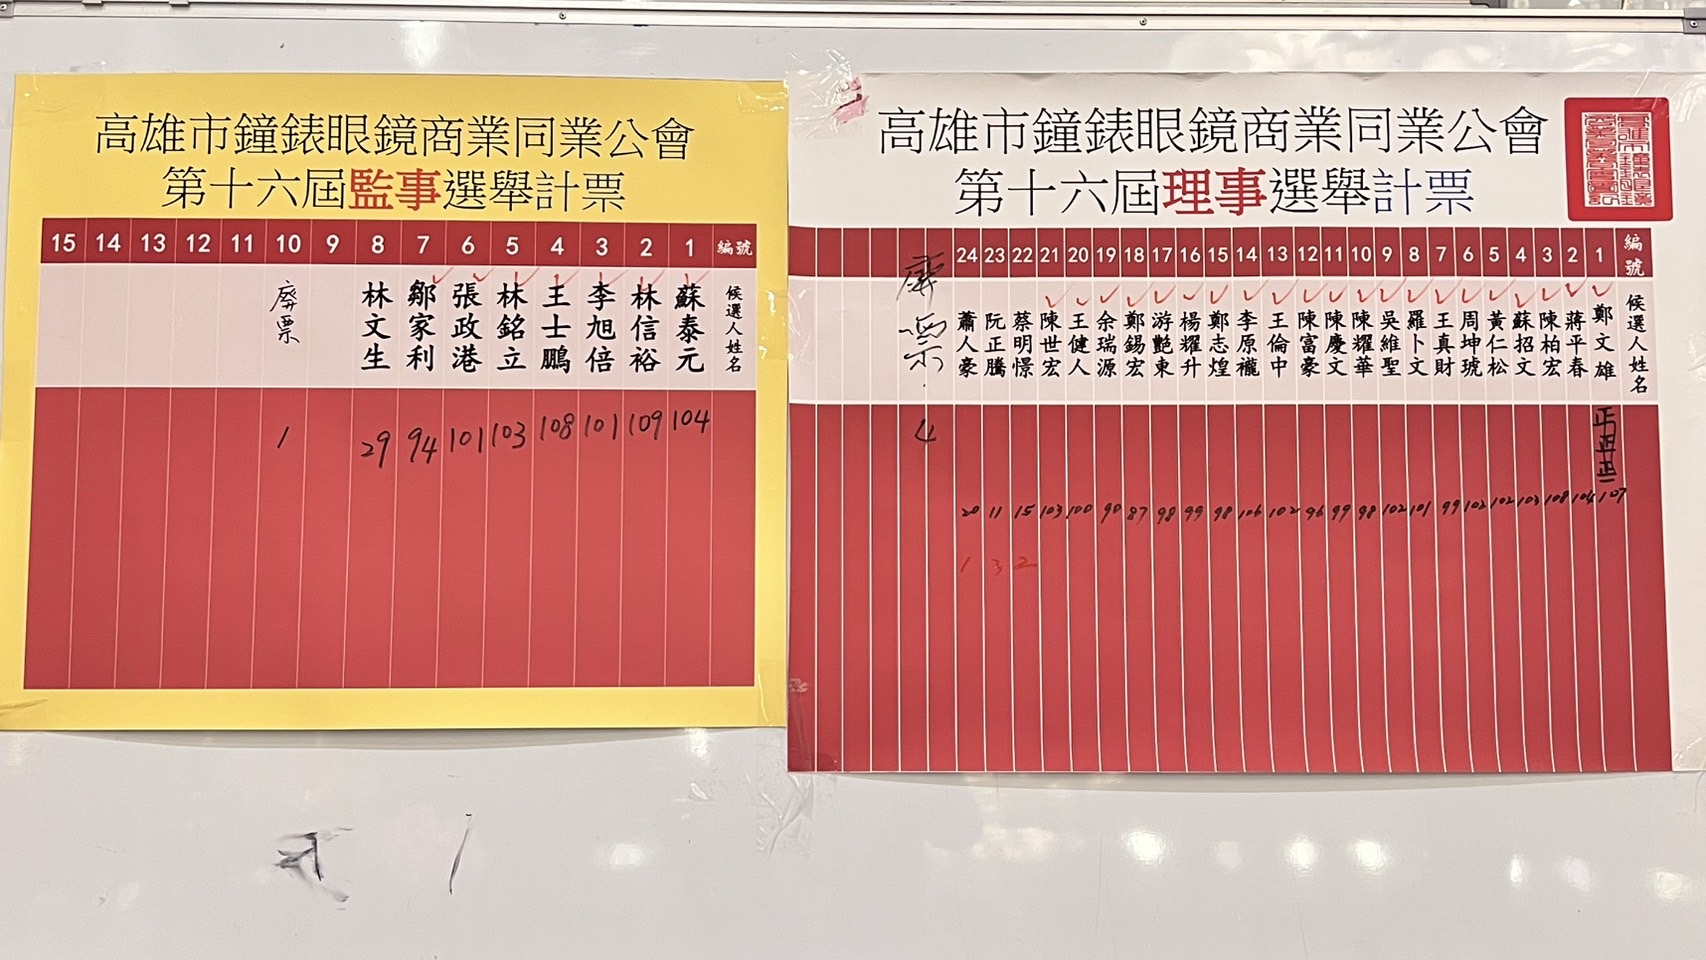 高雄市鐘錶眼鏡商業同業公會
第十六屆監事選舉計票
15 14 13 12 11 10 9 8 7 6 5 4 3 2 1 編號
廢票 林文生 鄒家利 張政港 林銘立 王士鵬 李旭倍 林信裕 蘇泰元 候選人姓名
1 29 94 101 103 108 101 109 104
高雄市鐘錶眼鏡商業同業公會
第十六屆理事選舉計票
24 23 22 21 20 19 18 17 16 15 14 13 12 11 10 9 8 7 6 5 4 3 2 1 編號
廢票 蕭人豪 阮正騰 蔡明憬 陳世宏 王健人 余瑞源 鄭錫宏 游艷東 楊耀升 鄭志煌 李原襱 王倫中 陳富豪 陳慶文 陳耀華 吳維聖 羅卜文 王真財 周坤琥 黃仁松 蘇招文 陳柏宏 蔣平春 鄭文雄 候選人姓名
4 正正正
20 11 15 103 100 90 87 98 99 98 106 102 96 99 98 102 101 99 102 102 103 108 104 107
1 3 2